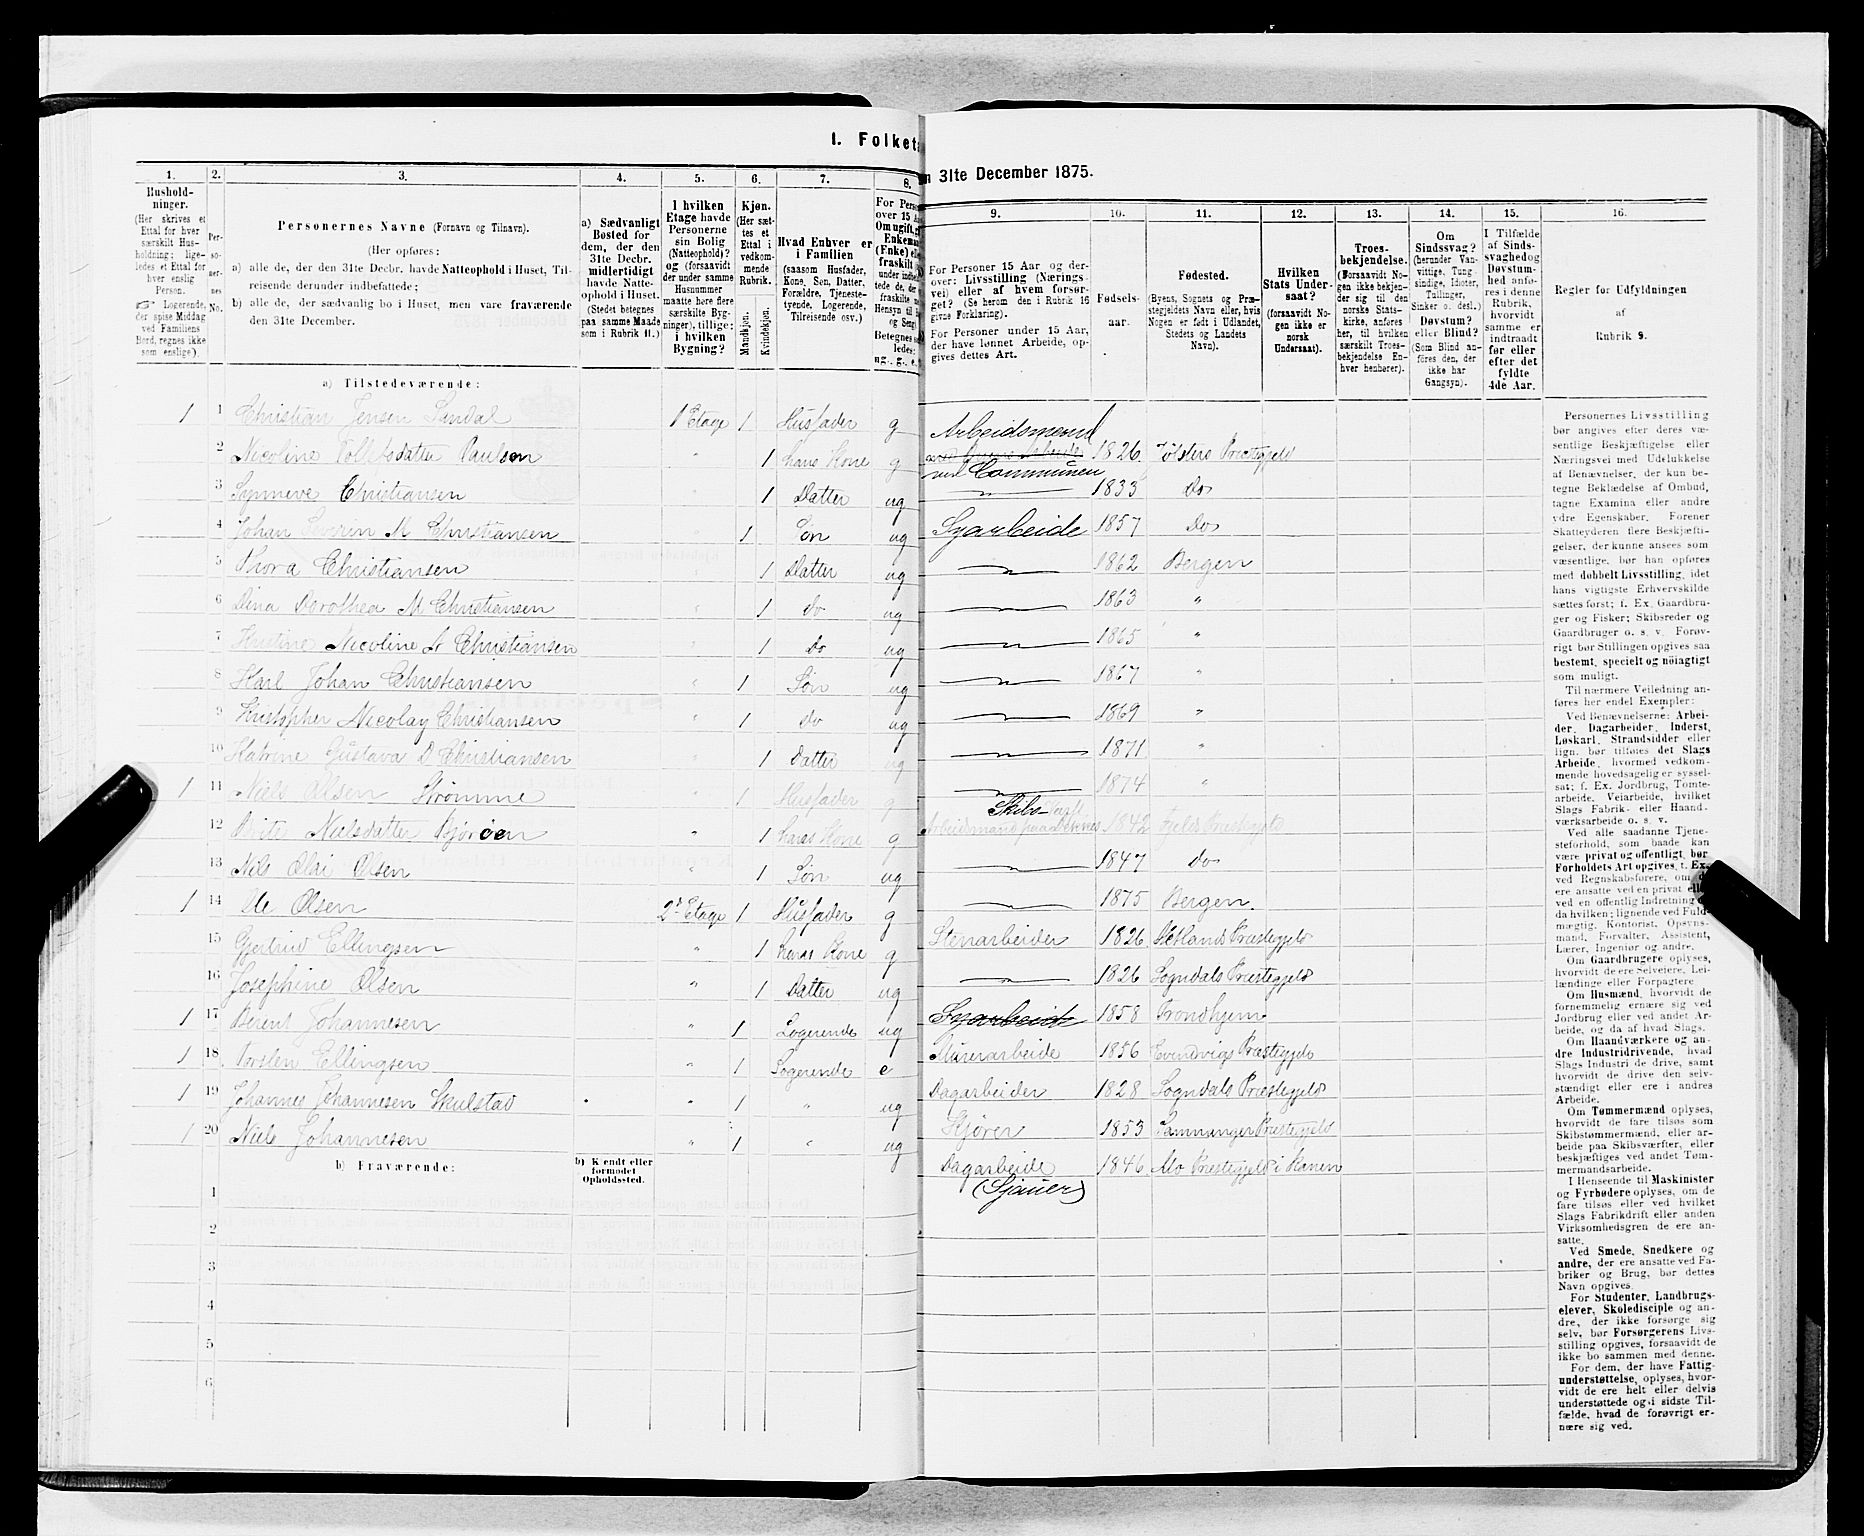 I. Folketæ
n 31te December 1875.
1. 2. 3. 4. 5. 6. 7. 8. 9. 10. 11. 12. 13. 14. 15. 16.
Hushold-
ninger.
(Her skrives et
Ettal for hver
særskilt Hus-
holdning; lige-
ledes et Ettal for
hver enslig
Person.
☞ Logerende,
der spise Middag
ved Familiens
Bord, regnes ikke
som enslige).
Per-
so-
ner-
nes
No.
Personernes Navne (Fornavn og Tilnavn).
(Her opføres:
a) alle de, der den 31te Decbr. havde Natteophold i Huset, Til-
reisende derunder indbefattede;
b) alle de, der sædvanlig bo i Huset, men vare fraværende
den 31te December.
a) Sædvanligt
Bosted for
dem, der den
31te Decbr.
midlertidigt
havde Natte-
ophold i Huset.
(Stedet betegnes
paa samme Maade
som i Rubrik 11.)
I hvilken
Etage havde
Personerne
sin Bolig
(Natteophold)?
og (forsaavidt
der under samme
Husnummer
maatte høre flere
særskilte Byg-
ninger), tillige:
i hvilken
Bygning?
Kjøn.
(Her sæt-
tes et
Ettal i
vedkom-
mende
Rubrik.
Mandkjøn.
Kvindekjøn.
Hvad Enhver er
i Familien
(saasom Husfader,
Kone, Søn, Datter,
Forældre, Tjeneste-
tyende, Logerende,
Tilreisende osv.)
For Perso
over 15 Aa
Om ugift, g
Enkema
(Enke) el
fraskilt
under indbe
tede de, de
fraskilte
Hensyn til B
og Seng
Betegnes s
ledes:
ug., g., e.
For Personer 15 Aar og der-
over: Livsstilling (Nærings-
vei) eller af hvem forsør-
get? (Se herom den i Rubrik 16
givne Forklaring).
For Personer under 15 Aar,
der have lønnet Arbeide, op-
gives dettes Art.
Fødsels-
aar.
Fødested.
(Byens, Sognets og Præ-
stegjeldets Navn eller, hvis
Nogen er født i Udlandet,
Stedets og Landets
Navn).
Hvilken
Stats Under-
saat?
(forsaavidt No-
gen ikke er
norsk
Undersaat).
Troes-
bekjendelse.
(Forsaavidt No-
gen ikke bekjen-
der sig til den
norske Stats-
kirke, anføres
her, til hvilken
særskilt Troes-
bekjendelse En-
hver henhører).
Om
Sindssvag?
(herunder Van-
vittige, Tung-
sindige, Idioter,
Tullinger,
Sinker o. desl.)
Døvstum?
eller Blind?
(Som Blind an-
føres den, der
ikke har
Gangsyn).
I Tilfælde
af Sinds-
svaghed og
Døvstum-
hed anfø-
res i denne
Rubrik,
hvorvidt
samme er
indtraadt
før eller
efter det
fyldte
4de Aar.
Regler for Udfyldningen
af
Rubrik 9.
a) Tilstedeværende:
1 1 Christian Jensen Sandal 1 Etage 1 Husfader g Arbeidsmand
2 Nicoline Tollefsdatter Paulsen " 1 hans Kone g ved Communen 1826 Jølsters Præstegjeld
3 Synneve Christiansen " 1 Datter ug 1833 Do
4 Johan Severin M Christiansen 1 Søn ug Syarbeide 1857 Do
5 Thora Christiansen 1 Datter ug 1862 Bergen
6 Dina Dorothea M Christiansen " 1 do ug 1863 "
7 Kristine Nicoline A Christiansen " 1 Do ug 1865 "
8 Karl Johan Christiansen " 1 Søn ug 1867 "
9 Kristopher Nicolay Christiansen " 1 do ug 1869 "
10 Katrine Gustava D Christiansen " 1 Datter ug 1871 "
1 11 Niels Olsen Strømme " 1 Husfader g 1874 "
12 Brite Nielsdatter Bjørøen " 1 hans Kone g Skibs- Arbeidsmand 1842 Fjelds Præstegjeld
13 Nils Olai Olsen " 1 Søn ug 1847 Do
1 14 Ole Olsen 2d Etage 1 Husfader g 1875 Bergen.
15 Gjertrud Ellingsen " 1 hans Kone g Stenarbeider 1826 Hetlands Præstegjeld
16 Josephine Olsen " 1 Datter ug 1826 Sogndals Præstegjeld
1 17 Berent Johannesen " 1 Logerende ug Syarbeide 1858 Trondhjem
1 18 Torsten Ellingsen " 1 Logerende e Murerarbeide 1856 Evindvigs Præstegjeld
1 19 Johannes Johannesen Skulstad " 1 " ug Dagarbeider 1828 Sogndals Præstegjeld
1 20 Niels Johannesen " 1 " ug Kjører 1853 Samnanger Præstegjeld
b) Fraværende:
b) Kjendt eller
formodet
Opholdssted.
Dagarbeide 1846 Præstegjeld i
(Sjauer)
1
2
3
4
5
6
Personernes Livsstilling
bør angives efter deres væ-
sentlige Beskjæftigelse eller
Næringsvei med Udelukkelse
af Benævnelser, der kun be-
tegne Beklædelse af Ombud,
tagne Examina eller andre
ydre Egenskaber. Forener
Skatteyderen flere Beskjæfti-
gelser, der kunne ansees som
væsentlige, bør han opføres
med dobbelt Livsstilling, idet
hans vigtigste Erhvervskilde
sættes først; f. Ex. Gaardbru-
ger og Fisker; Skibsreder og
Gaardbruger o. s. v. Forøv-
rigt bør Stillingen opgives saa
bestemt, specielt og nøiagtigt
som muligt.
Til nærmere Veiledning an-
føres her endel Exempler:
Ved Benævnelserne: Arbei-
der, Dagarbeider, Inderst,
Løskarl, Strandsidder eller
lign. bør tilføies det Slags
Arbeide, hvormed vedkom-
mende hovedsagelig er syssel-
sat; f. Ex. Jordbrug, Tomte-
arbeide, Veiarbeide, hvilket
Slags Fabrik- eller Haand-
værksarbeide o. s. v.
Ved alle saadanne Tjene-
steforhold, som baade kan
være privat og offentligt, bør
Forholdets Art opgives, t. Ex.
ved Regnskabsførere, om d
ere ansatte ved en privat ell
ved en offentlig Indretning o
da hvilken; lignende ved Fuld-
mægtig, Kontorist, Opsyns-
mand, Forvalter, Assistent,
Lærer, Ingeniør og andre.
Om Gaardbrugere oplyses,
hvorvidt de ere Selveiere, Lei-
lændinge eller Forpagtere
Om Husmænd, hvorvidt de
fornemmelig ernære sig ved
Jordbrug eller ved andet Ar-
beide, og da af hvad Slags.
Om Haandværkere og an-
dre Industridrivende, hvad
Slags Industri de drive, samt
hvorvidt de drive den selv-
stændigt eller ere i andres
Arbeide.
Om Tømmermænd oplyses,
hvorvidt de fare tilsøs som
Skibstømmermænd, eller ar-
beide paa Skibsværfter, eller
beskjæftiges ved andet Tøm-
mermandsarbeide.
I Henseende til Maskinister
og Fyrbødere oplyses, om de
fare tilsøs eller ved hvilket
Slags Fabrikdrift eller anden
Virksomhedsgren de ere an-
satte.
Ved Smede, Snedkere og
andre, der ere ansatte ved Fa-
briker og Brug, bør dettes
Navn opgives.
For Studenter, Landbrugs-
elever, Skoledisciple og an-
dre, der ikke forsørge sig
selv, bør Forsørgerens Livs-
stilling opgives, forsaavidt de
ikke bo sammen med denne.
For dem, der have Fattig-
understøttelse, oplyses, hvor-
vidt de ere helt eller delvis
understøttede og i sidste Til-
fælde, hvad de forøvrigt er-
nære sig ved.